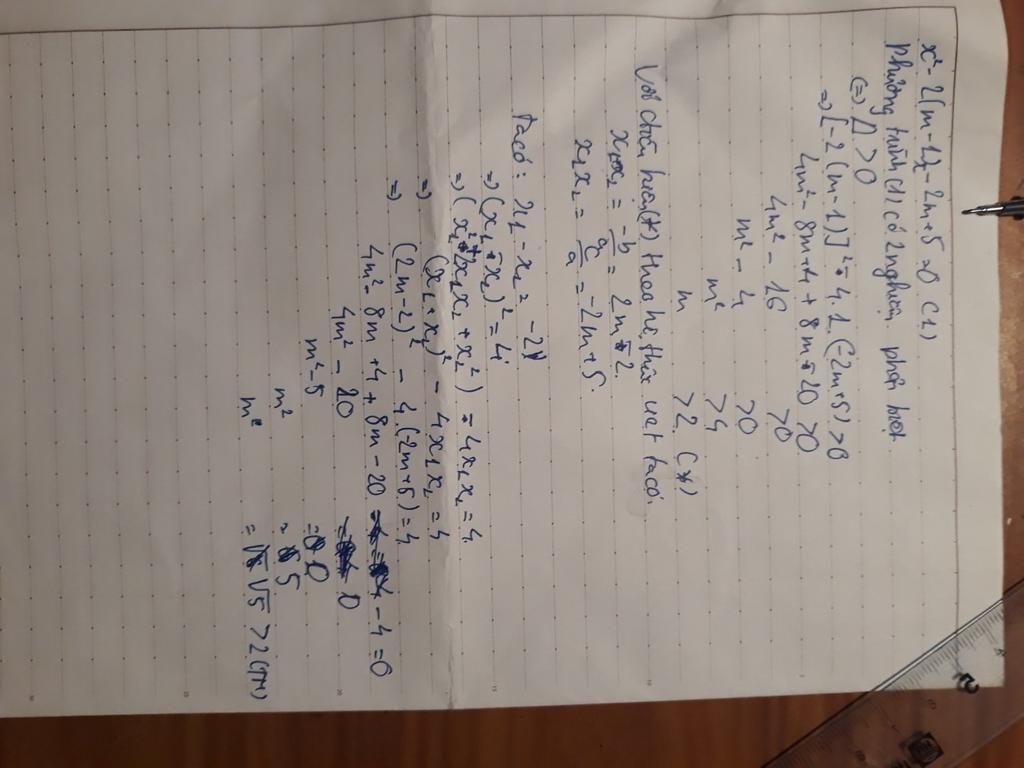 x² - 2(m-1)x - 2m+5 = 0 (1)
Phương trình (1) có 2 nghiệm phân biệt
(=) Δ > 0
=) [-2(m-1)]² - 4.1.(-2m+5) > 0
4m² - 8m + 4 + 8m - 20 > 0
4m² - 16 > 0
m² - 4 > 0
m² > 4
m > 2 (*)
Với điều kiện (*) theo hệ thức viet ta có
x₁+x₂ = -b/a = 2m - 2
x₁x₂ = c/a = -2m + 5
Ta có: x₁ - x₂ = 2
=) (x₁ - x₂)² = 4
=) (x₁² + 2x₁x₂ + x₂²) - 4x₁x₂ = 4
=) (x₁ + x₂)² - 4x₁x₂ = 4
=) (2m-2)² - 4(2m+5) = 4
4m² - 8m + 4 + 8m - 20 - 4 = 0
4m² - 20 = 0
m² - 5 = 0
m² = 5
m² = √5 > 2 (TM)